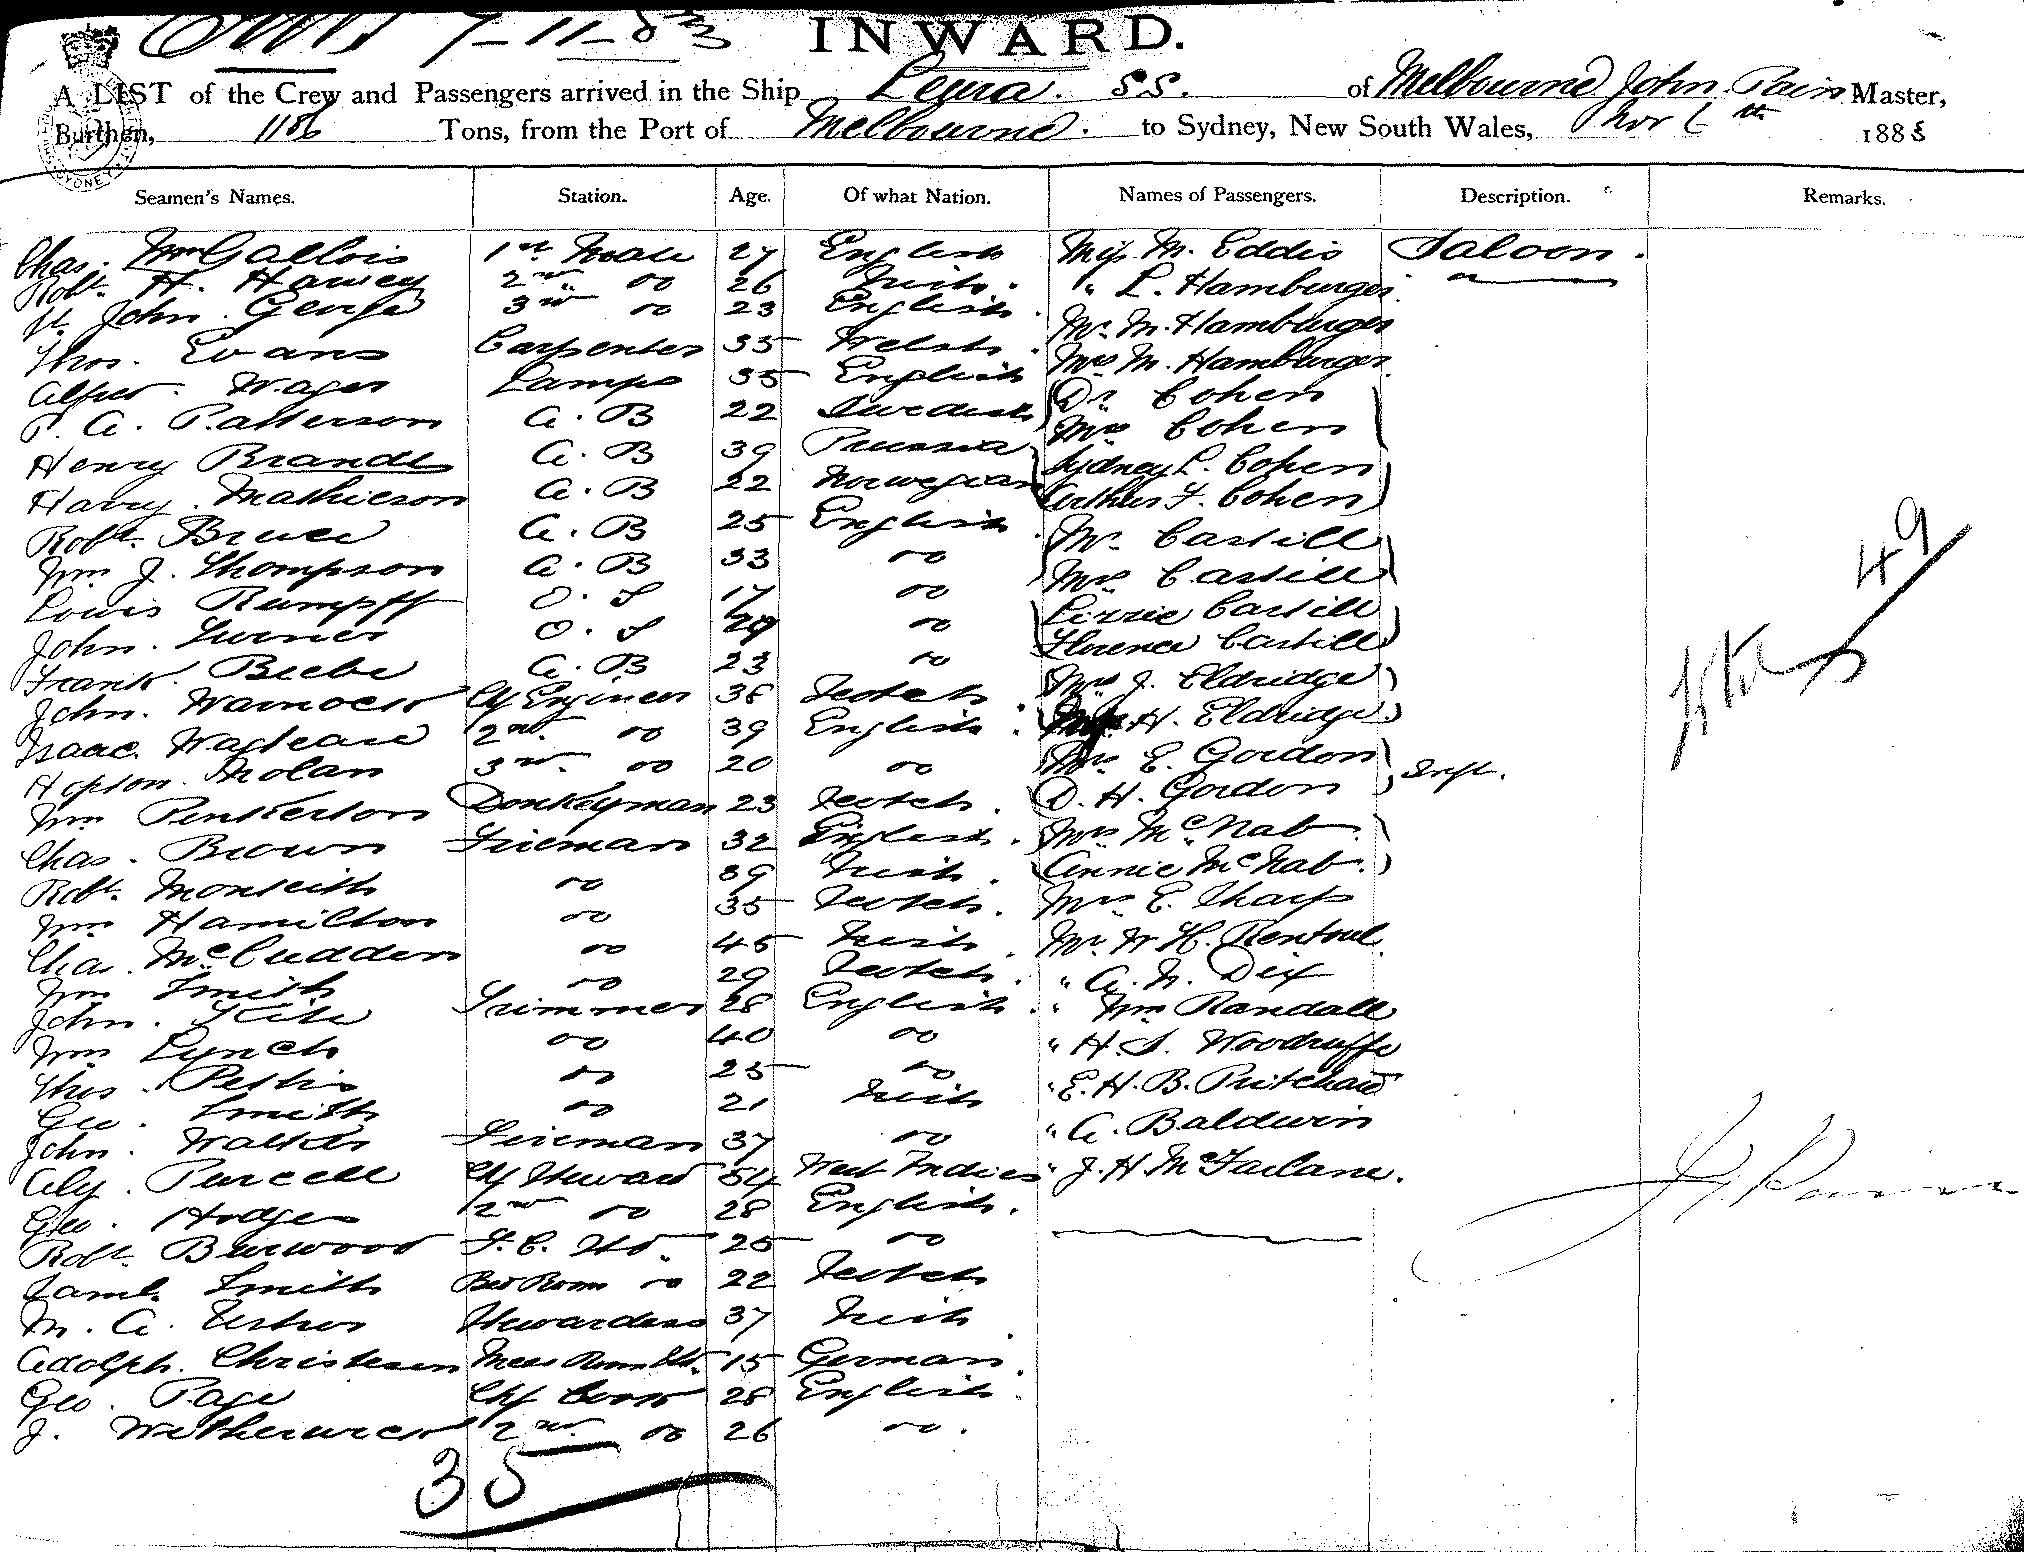 7-11-83 INWARD.
A LIST of the Crew and Passengers arrived in the Ship Leura. SS. of Melbourne John Pain Master,
Burthen, 1186 Tons, from the Port of Melbourne. to Sydney, New South Wales, Nov 6th 188
Seamen's Names. Station. Age. Of what Nation. Names of Passengers. Description. Remarks.
Chas. Wm Gallois 1st Mate 27 English Miss M. Eddis Saloon.
Robt. H. Harvey 2nd do 26 Irish. " L. Hamburger
St. John George 3rd do 23 English. Mr. M. Hamburger
Thos. Evans Carpenter 35 Welsh. Mrs M. Hamburger
Alfred. Wager Lamps 35 English Dr. Cohen
P. A. Patterson A. B 22 Swedish Mrs Cohen
Henry Brandt A. B 39 Prussia Sydney L. Cohen
Harry. Mathieson A. B 22 Norwegian Arthur F. Cohen
Robt. Bruce A. B 25 English. Mr. Castill
Wm J. Thompson A. B 33 do Mrs Castill
Louis Rumpff O. S 17 do Lizzie Castill
John. Turner O. S do Florence Castill
Frank. Beebe A. B 23 do Mrs J. Eldridge
John. Warnock Chf Engineer 38 Scotch. H. Eldridge
Isaac. 2nd. do 39 English. Mrs E. Gordon
Nolan 3rd. do 20 do D. H. Gordon
Wm Penkerton Donkeyman 23 Scotch. Mrs McNab
Chas. Brown Fireman 32 English. Annie McNab.
Robt. Monteith do 39 Irish. Mrs E. Sharp
Wm Hamilton do 35 Scotch. Mr. W. H. Rentoul
Chas. McCudden do 45 Irish. " A. N. Dix
Wm Smith do 29 Scotch. " Wm Randall
John. Kite Trimmer 28 English. " H. S. Woodruffe
Wm Lynch do 40 do " E. H. B. Pritchard
Thos. Pettis do 25 do " A. Baldwin
Geo. Smith do 21 Irish " J. H. McFarlane.
John. Walker Fireman 37 do
Aly. Purcell Chf Steward 54 West Indies
Geo. Hodges 2nd do 28 English.
Robt. Burwood F. C. Std. 25 do
Saml. Smith Bed Room do 22 Scotch
M. A. Usher Stewardess 37 Irish.
Adolph. Christesen Mess Room Std. 15 German.
Geo. Page Chf Cook 28 English.
J. Wetherwick 2nd. do 26 do.
35
49